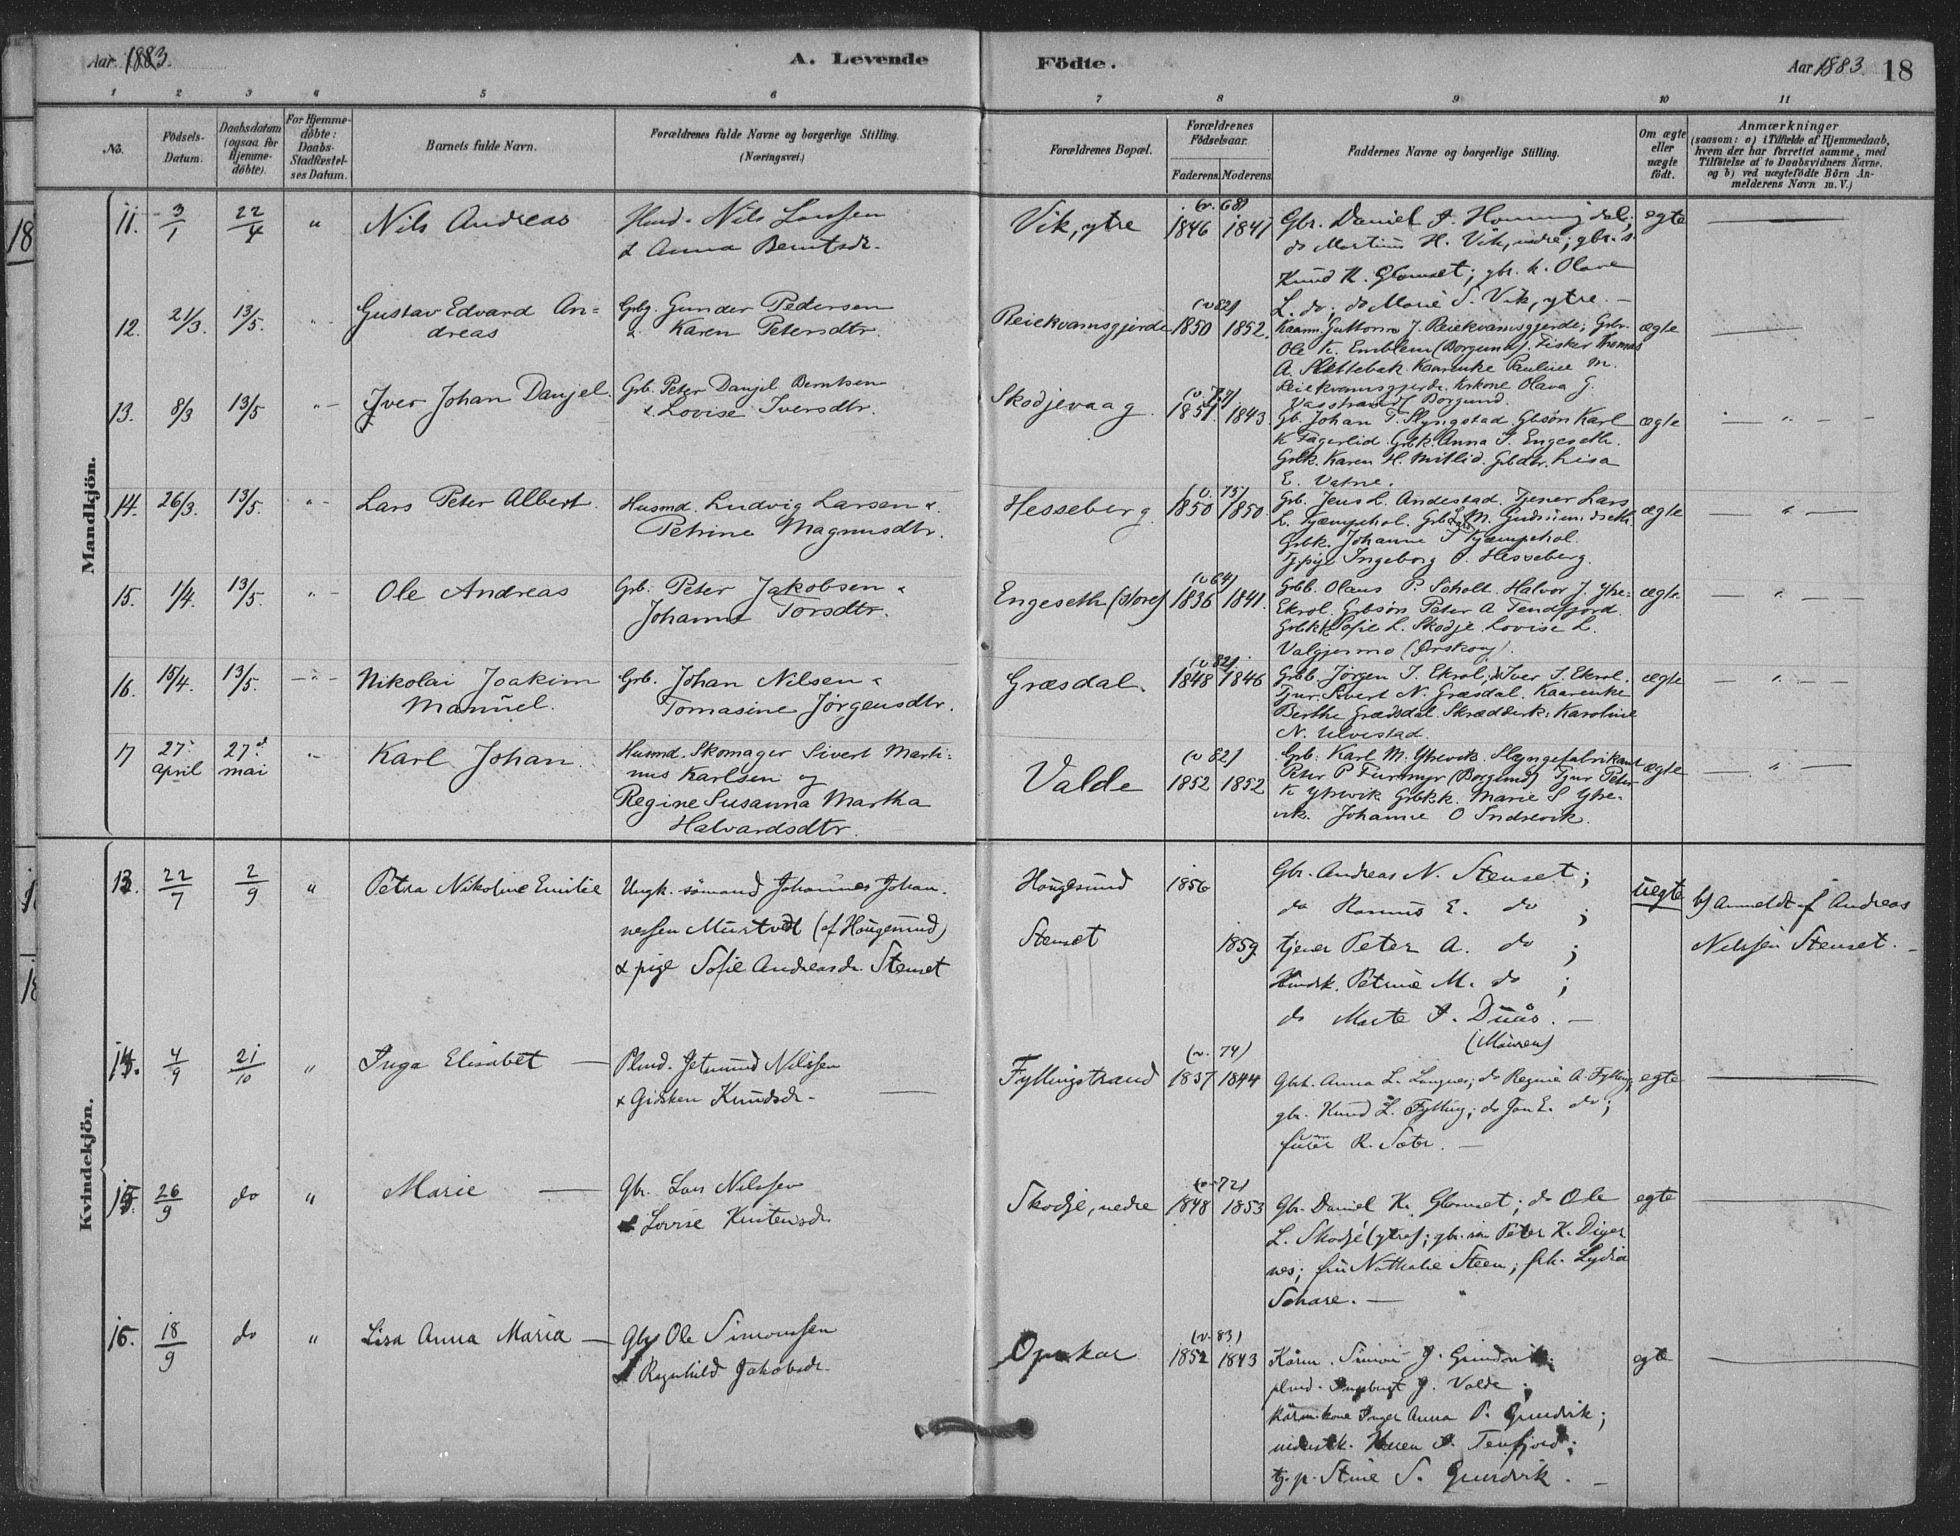 Aar 1883.
A. Levende Födte.
Aar 1883. 18
1 2 3 4 5 6 7 8 9 10 11
No.
Födsels-Datum.
Daabsdatum (ogsaa for Hjemme-döbte).
For Hjemme-döbte: Daabs-Stadfæstel-ses Datum.
Barnets fulde Navn.
Forældrenes fulde Navne og borgerlige Stilling.
(Næringsvei.)
Forældrenes Bopæl.
Forældrenes Födselsaar.
Faderens. Moderens.
Faddernes Navne og borgerlige Stilling.
Om ægte eller uægte födt.
Anmærkninger
(saasom: a) i Tilfælde af Hjemmedaab,
hvem der har forrettet samme, med
Tilföielse af to Daabsvidners Navne.
og b) ved uægtefödte Börn An-
melderens Navn m. V.)
Mandkjön.
11. 3/1 22/4 " Nils Andreas
Husd. Nils Larssen
& Anna Berntsdr.
Vik, ytre (v. 68) 1846 1841
Gbr. Daniel J. Hommingdal;
do Martinus H. Vik, indre; gbr. s.
Knud K. Glomset; gbr. k. Olave
L. do; do Marie S. Vik, ytre. —
egte
12. 21/3. 13/5. " Gustav Edvard An-
dreas
Grbg. Gunder Pedersen
& Karen Petersdtr.
Reiekvamsgjerde (v 82) 1850 1852.
Kaarm. Guttorm J. Reiekvamsgjerde; Grbr.
Ole K. Emblem (Borgund). Fisker Thomas
A. Slettebak. Kaarenke Pauline M.
Reiekvamsgjerde. Kirkone Olava G.
Vasstrand / Borgund.
ægte
13. 8/3 13/5. " Iver Johan Danjel.
Grb. Peter Danjel Berntsen
& Lovise Iversdtr.
Skodjevaag. (v. 77) 1851. 1843.
Gb. Johan T. Slyngstad. Gbsön Karl
K Fagerlid. Grbk. Anna I. Engeseth.
Grbk. Karen H. Mitlid. Grbdtr. Lisa
E. Vatne.
ægte
14. 26/3. 13/5. " Lars Peter Albert.
Husmd. Ludvig Larsen &
Petrine Magnusdtr.
Hesseberg. (v. 75) 1850 1850.
Grb. Jens L. Andestad. Tjener Lars
L. Kjæmpehol. Grb M. Gudmundseth.
Grbk. Johanne I Kjæmpehol.
Tjpige Ingeborg O. Hesseberg.
ægte
15. 1/4. 13/5. " Ole Andreas
Grb. Peter Jakobsen &
Johanne Torsdtr.
Engeseth (store) (v 64) 1836 1841.
Grbb. Olaus P. Scholt. Halvor J. Ytre-
Ekrol. Grbsön Peter A Tendfjord.
Grbkk Sofie L. Skodje. Lovise L.
Valgjermo (Ørskog).
ægte
16. 15/4. 13/5. " Nikolai Joakim
Manuel.
Grb. Johan Nilsen &
Tomasine Jörgensdtr.
Græsdal. (v 82). 1848 1846
Grbb. Jörgen I. Ekrol, & Iver I. Ekrol.
Tjnr. Sivert N. Græsdal. Kaarenke
Berthe Græsdal. Skrædderk: Karoline
N. Ulvestad.
ægte
17 27. april 27d mai " Karl Johan.
Husmd. Skomager Sivert Marti-
nus Karlsen og
Regine Susanna Martha
Halvardsdtr.
Valde (v 82) 1852 1852
Grb. Karl M. Ytrevik. Slyngefabrikant
Peter P Furmyr (Borgund) Tjnr Peter
K Ytrevik Grbkk. Marie S Ytre-
vik. Johanne O Indrevik.
ægte
Kvindekjön.
13. 22/7 2/9 " Petra Nikoline Emilie
Ungk. sömand Johannes Johan-
nessen Murtvedt (af Haugesund)
& pige Sofie Andreasdr. Stenset
Haugesund 1856
Stenset 1859.
Gbr. Andreas N. Stenset;
do Rasmus E. do;
tjener Peter A. do;
Husdk. Petrine M. do;
do Marte J. Duås. —
(Mauren)
uegte
b) Anmeldt af Andreas
Nilssen Stenset. —
14. 4/9 21/10 " Inga Elisabet —
Plmd. Jetmund Nilssen
& Gidsken Knudsdr. —
Fyllingstrand (v. 74) 1837 1844
Gbrk. Anna L. Langnes; do Regine A. Fylling,
gbr. Knud L. Fylling; do Jon E. do;
R. Sæter. —
egte
15. 26/9 do " Marie —
Gbr. Lars Nilssen
& Lovise Kristensdr
Skodje, nedre (v. 72) 1848 1853
Gbr. Daniel K. Glomset; do Ole
L. Skodje (ytre); gbr. sön Peter K. Diger
nes; fru Nathalie Steen; frk. Lydia
Schare. —
egte
16. 18/9 do " Lisa Anna Maria —
Gbr Ole Simonssen
& Ragnhild Jakobsdr.
Opskar (v. 83) 1852 1843
Kårm. Simon J. Grindvik;
plmd. Ingebrigt J. Valde;
Kårmkone Inger Anna P. Grindvik;
Karen J. Tenfjord;
tj. p. Stine S. Grindvik. —
egte